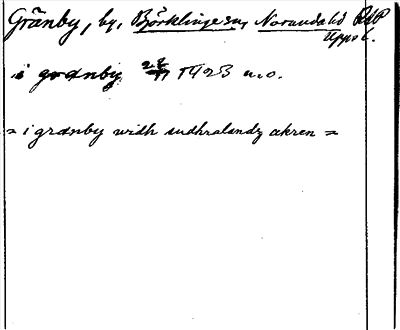 Gränby, by, Björklinge sn, Norunda hd
Upps l.
i grænby 1423 u.o.
= i grænby widh sudhralandz akren =